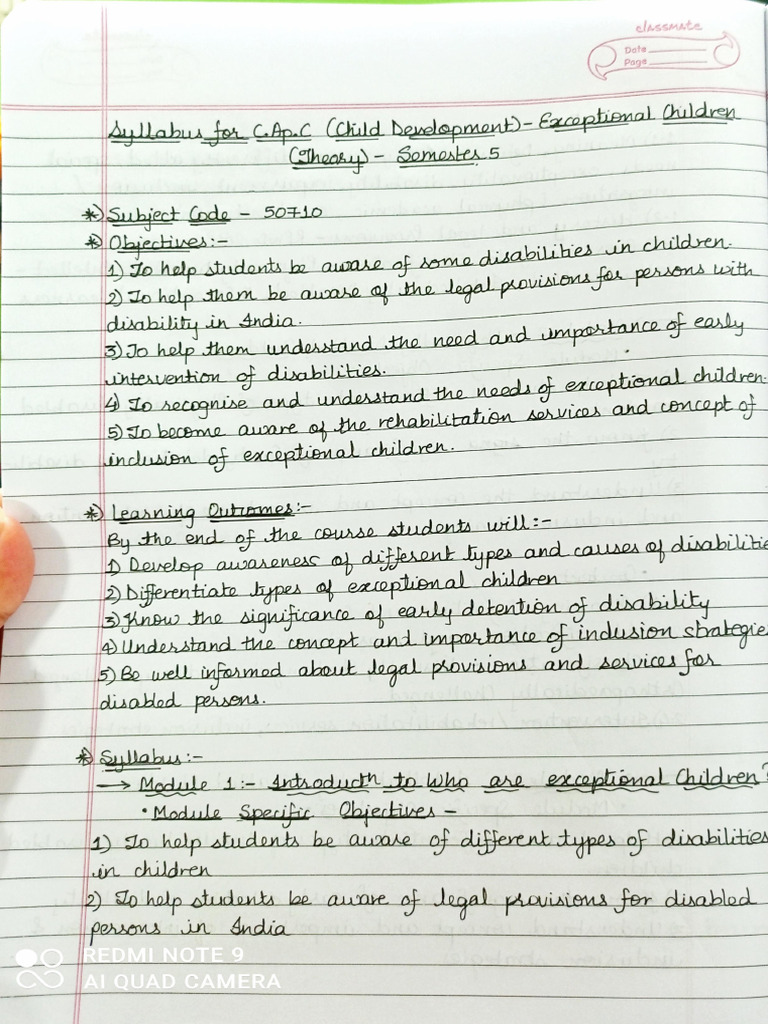 classmate
Date
Page
Syllabus for C.Ap.C (Child Development)- Exceptional Children
(Theory) - Semester 5
*) Subject Code - 50710
*) Objectives:-
1) To help students be aware of some disabilities in children.
2) To help them be aware of the legal provisions for persons with
disability in India.
3) To help them understand the need and importance of early
intervention of disabilities.
4) To recognise and understand the needs of exceptional children.
5) To become aware of the rehabilitation services and concept of
inclusion of exceptional children.
*) Learning Outcomes:-
By the end of the course students will:-
1) Develop awareness of different types and causes of disabilitie
2) Differentiate types of exceptional children
3) Know the significance of early detention of disability
4) Understand the concept and importance of inclusion strategie
5) Be well informed about legal provisions and services for
disabled persons.
*) Syllabus:-
→ Module 1:- Introductn to Who are exceptional Children?
• Module Specific Objectives -
1) To help students be aware of different types of disabilities
in children
2) To help students be aware of legal provisions for disabled
persons in India
REDMI NOTE 9
AI QUAD CAMERA